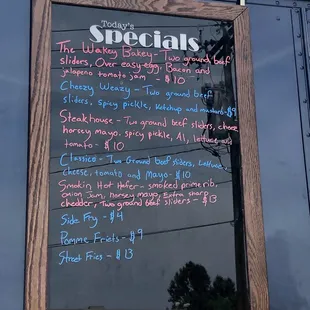 Today's
Specials
The Wakey Bakey - Two ground beef
sliders, Over easy egg, Bacon and
jalapeno tomato jam - $10
Cheezy Weazy - Two ground beef
sliders, spicy pickle, Ketchup and mustard-$9
Steakhouse - Two ground beef sliders, cheese
horsey mayo, spicy pickle, A1, lettuce and
tomato - $10
Classico - Two Ground beef sliders, Lettuce
cheese, tomato and Mayo - $10
Smokin Hot Heifer - smoked prime rib,
onion Jam, horsey mayo, Extra sharp
chedder, Two ground beef sliders - $13
Side Fry - $4
Pomme Friets - $9
Street Fries - $13